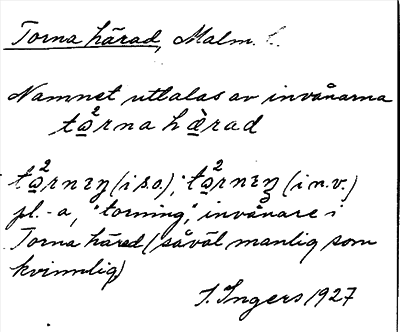 Torna härad, Malm. l.
Namnet uttalas av invånarna
tɑ̲²rna hæ̲̀rad
tɑ̲²rnɪŋ (i s.o.); tɑ̲²rnɪŋ (i n.v.)
pl. -a, "torning", invånare i
Torna härad (såväl manlig som
kvinnlig)
I. Ingers 1927